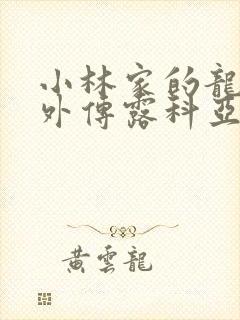 小林家的龍
外傳露科亞
黃雲龍